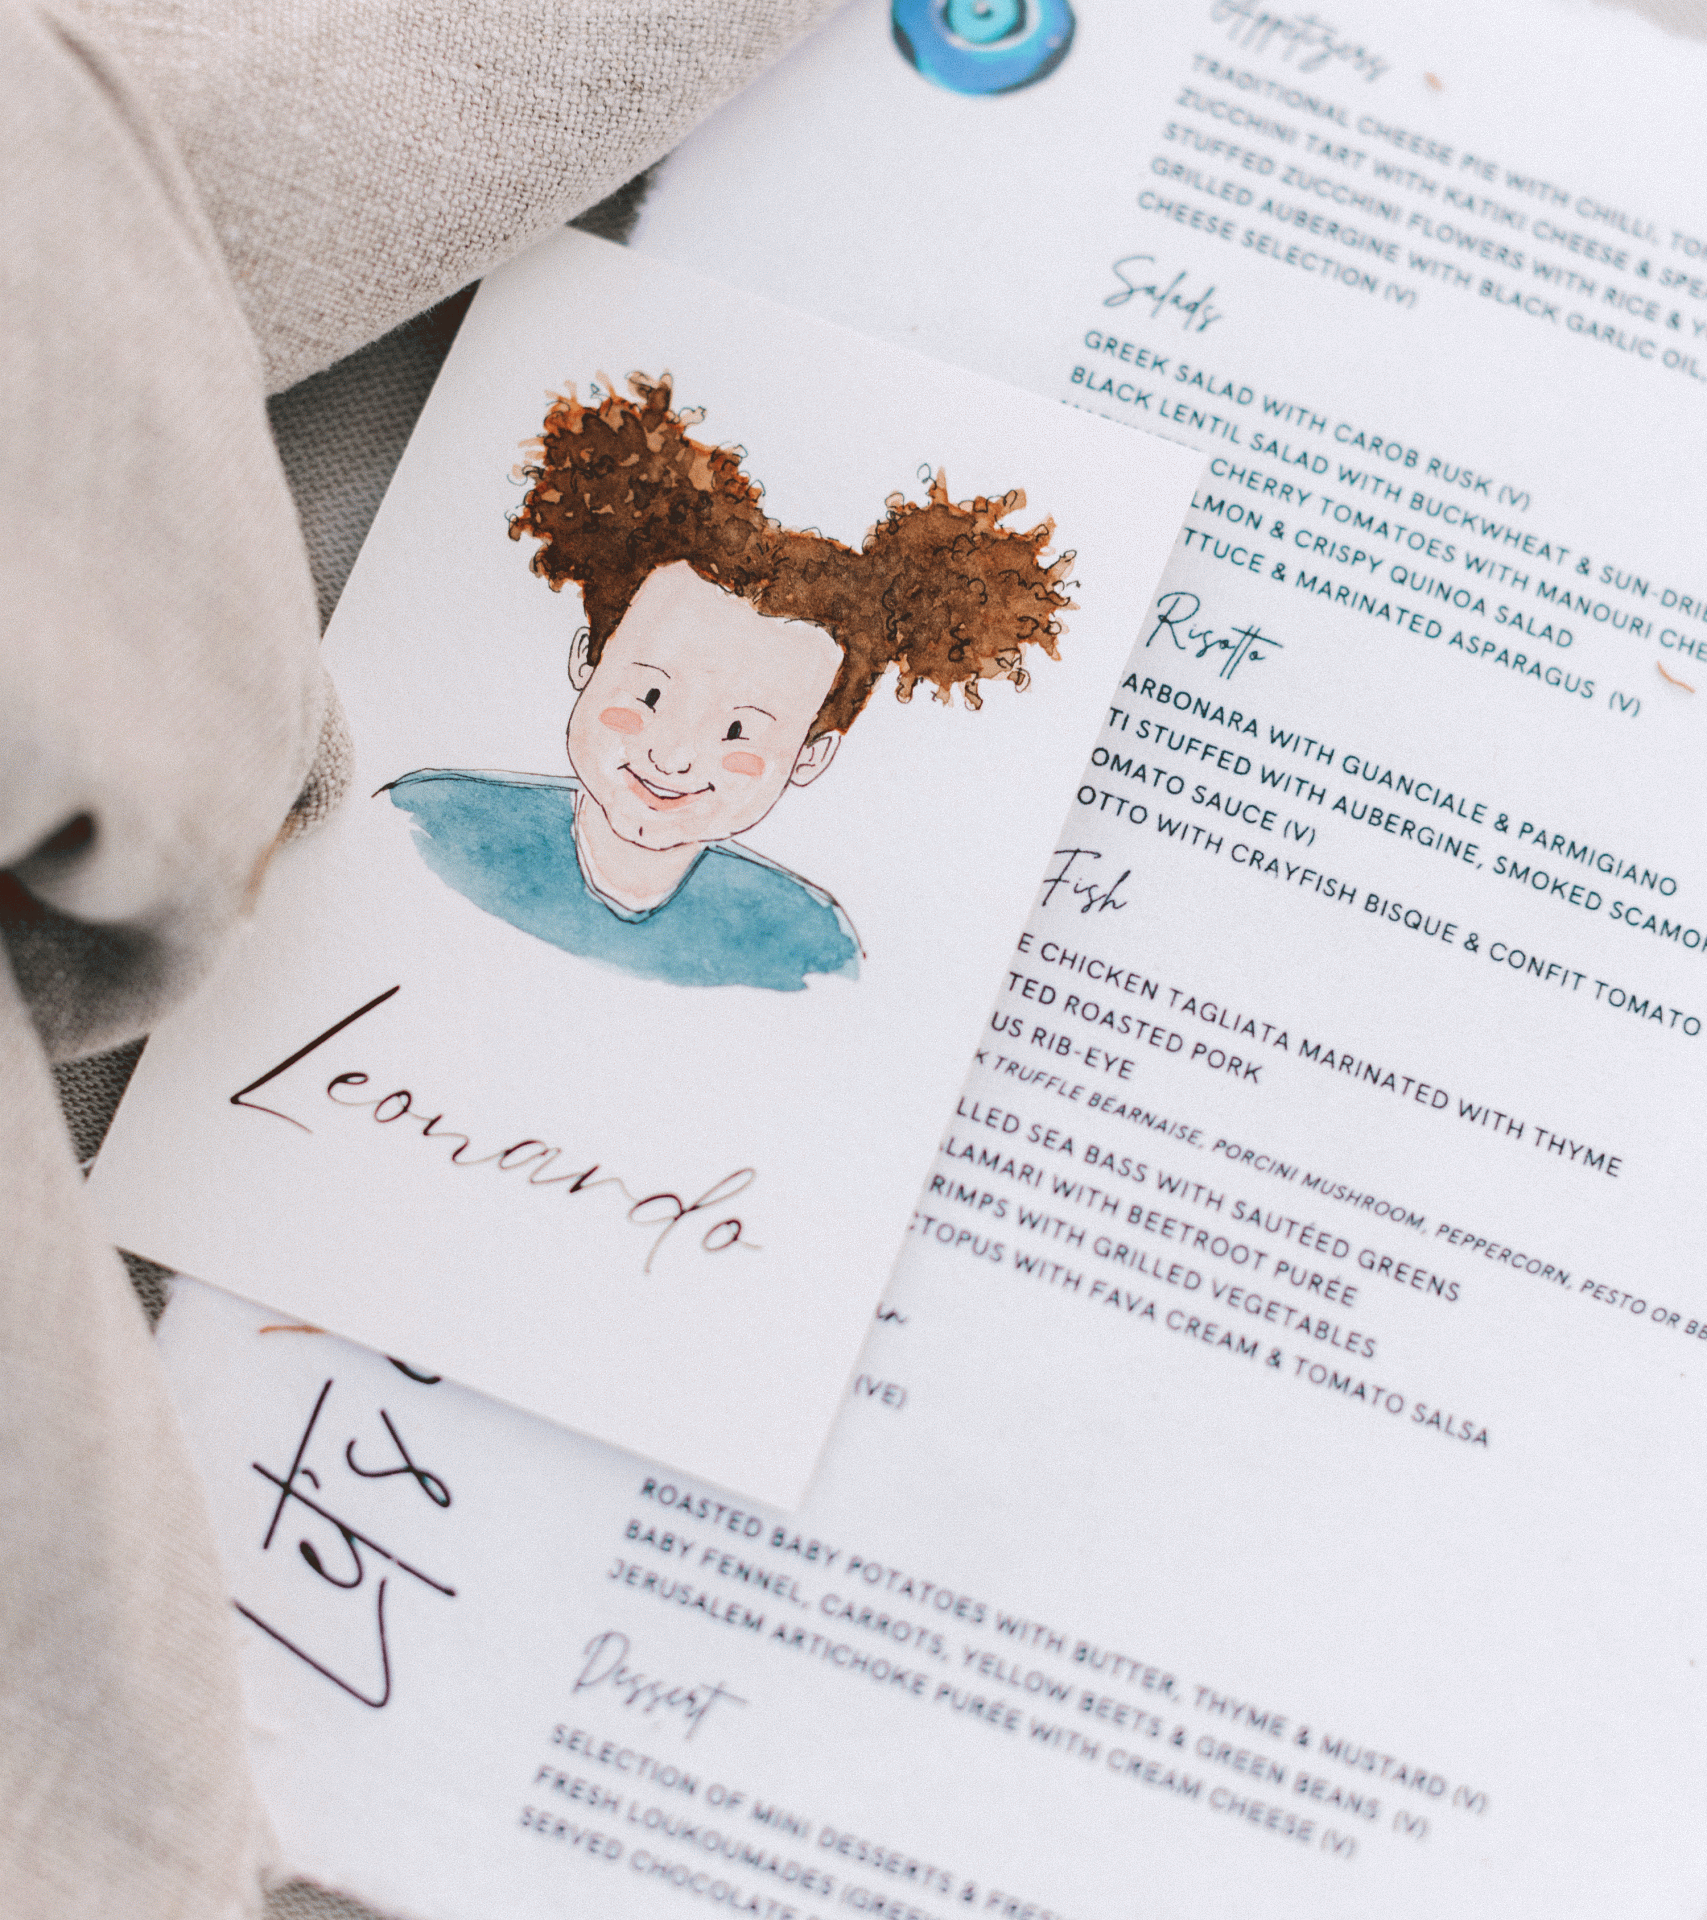 Appetizers
TRADITIONAL CHEESE PIE WITH CHILLI,
ZUCCHINI TART WITH KATIKI CHEESE &
STUFFED ZUCCHINI FLOWERS WITH RICE &
GRILLED AUBERGINE WITH BLACK GARLIC OIL,
CHEESE SELECTION (V)
Salads
GREEK SALAD WITH CAROB RUSK (V)
BLACK LENTIL SALAD WITH BUCKWHEAT & SUN-DRIE
CHERRY TOMATOES WITH MANOURI CHE
LMON & CRISPY QUINOA SALAD
TTUCE & MARINATED ASPARAGUS (V)
Risotto
ARBONARA WITH GUANCIALE & PARMIGIANO
TI STUFFED WITH AUBERGINE, SMOKED SCAMO
OMATO SAUCE (V)
OTTO WITH CRAYFISH BISQUE & CONFIT TOMATO
Fish
E CHICKEN TAGLIATA MARINATED WITH THYME
TED ROASTED PORK
US RIB-EYE
K TRUFFLE BÉARNAISE, PORCINI MUSHROOM, PEPPERCORN, PESTO OR BE
LLED SEA BASS WITH SAUTÉED GREENS
LAMARI WITH BEETROOT PURÉE
RIMPS WITH GRILLED VEGETABLES
CTOPUS WITH FAVA CREAM & TOMATO SALSA
in
(VE)
ROASTED BABY POTATOES WITH BUTTER, THYME & MUSTARD (V)
BABY FENNEL, CARROTS, YELLOW BEETS & GREEN BEANS (V)
JERUSALEM ARTICHOKE PURÉE WITH CREAM CHEESE (V)
Dessert
SELECTION OF MINI DESSERTS & FRES
FRESH LOUKOUMADES (GREE
SERVED CHOCOLATE
Leonardo
Let's